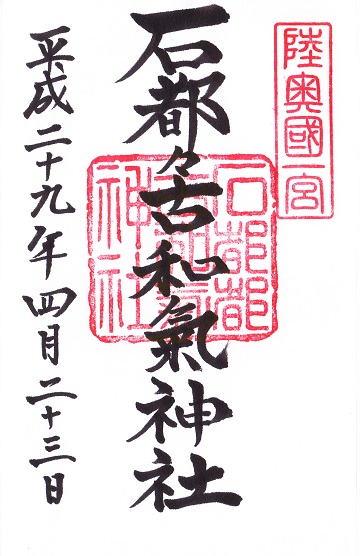 陸奥國一宮
石都々古和氣神社
石都都
古和氣
神社
平成二十九年四月二十三日